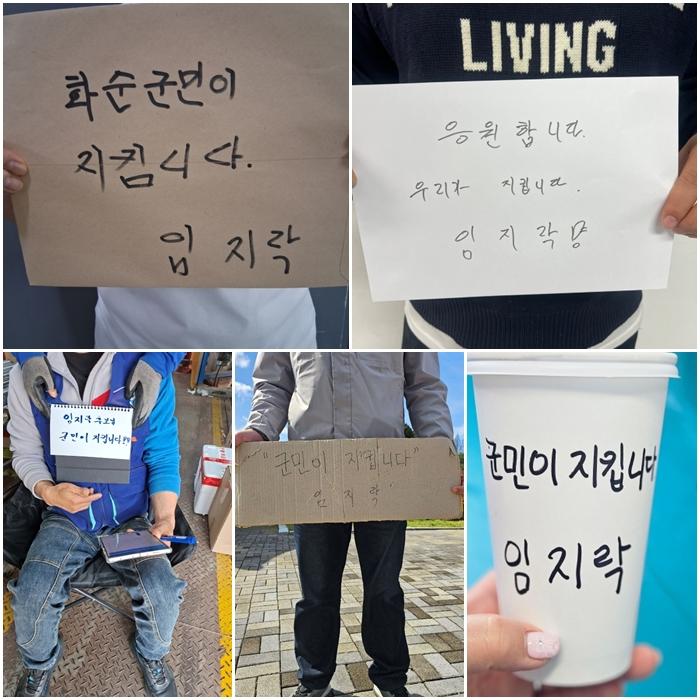 화순군민이
지킵니다.
임 지락
LIVING
응원 합니다.
우리가 지킵니다.
임 지 락
임지락 후보님
군민이 지킵니다
"군민이 지킵니다"
임 지 락
군민이 지킵니다
임지락